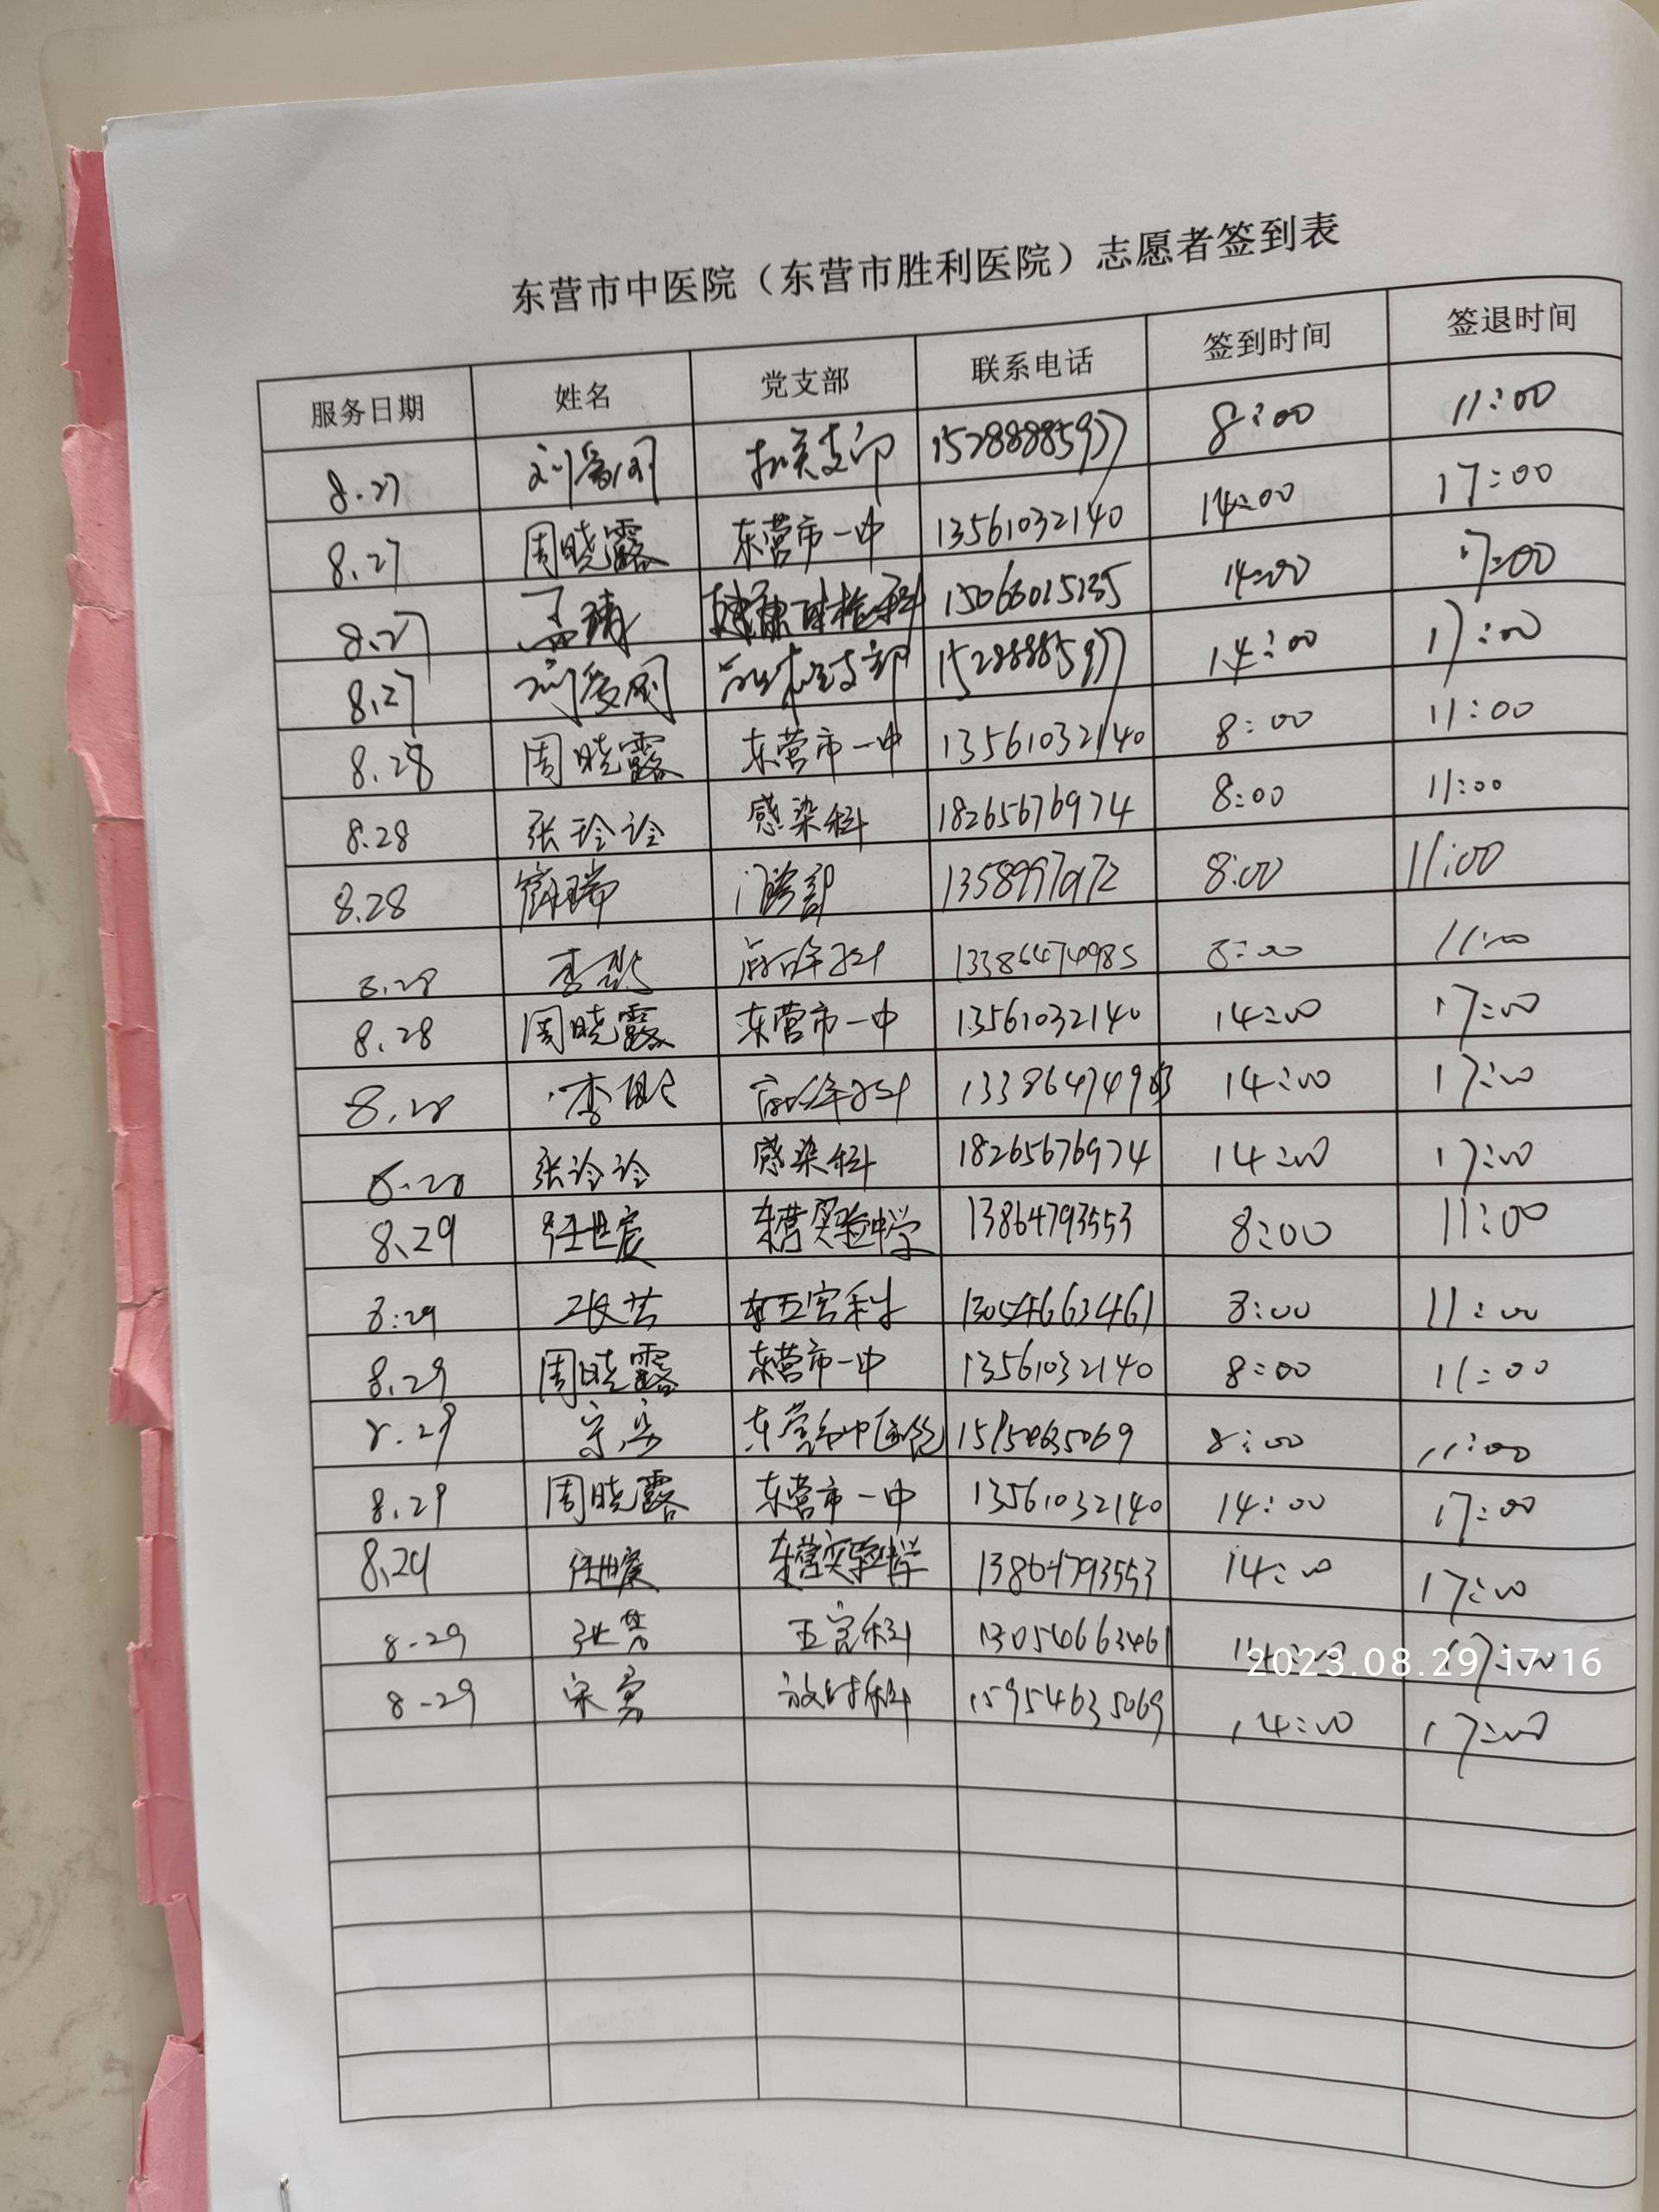 东营市中医院（东营市胜利医院）志愿者签到表
服务日期 姓名 党支部 联系电话 签到时间 签退时间
8.27 刘爱刚 机关支部 15288885977 8:00 11:00
8.27 周晓露 东营市一中 13561032140 14:00 17:00
8.27 孟靖 健康体检科 15066015135 14:00 17:00
8.27 刘爱刚 支部 15288885977 14:00 17:00
8.28 周晓露 东营市一中 13561032140 8:00 11:00
8.28 张玲玲 感染科 18265676974 8:00 11:00
8.28 瑞 门诊部 8:00 11:00
8.28 李 13386474985 8:00 11:00
8.28 周晓露 东营市一中 13561032140 14:00 17:00
8.28 李 14:00 17:00
8.28 张玲玲 感染科 18265676974 14:00 17:00
8.29 任世宸 东营实验中学 13864793553 8:00 11:00
8:29 张芳 五官科 13054663461 8:00 11:00
8.29 周晓露 东营市一中 13561032140 8:00 11:00
8.29 东营市中医院 8:00 11:00
8.29 周晓露 东营市一中 13561032140 14:00 17:00
8.29 任世宸 东营实验中学 13864793553 14:00 17:00
8-29 张芳 五官科 13054663461 14:00 17:00
8-29 宋勇 放射科 15954635069 14:00 17:00
2023.08.29 17:16